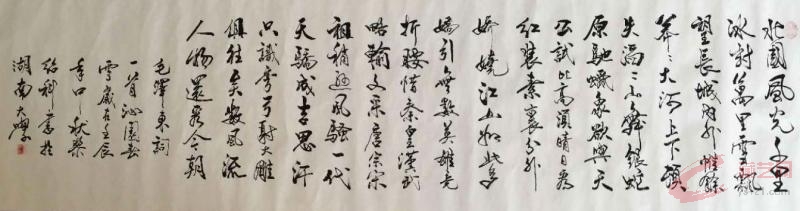 北國風光千里
冰封萬里雪飄
望長城內外惟餘
莽々大河上下頓
失滔々山舞銀蛇
原馳蠟象欲與天
公試比高須晴日看
紅裝素裹分外
妖嬈江山如此多
嬌引無數英雄競
折腰惜秦皇漢武
略輸文采唐宗宋
祖稍遜風騷一代
天驕成吉思汗
只識彎弓射大雕
俱往矣數風流
人物還看今朝
毛澤東詞
一首沁園春
雪歲在壬辰
年秋
紹科書於
湖南大學